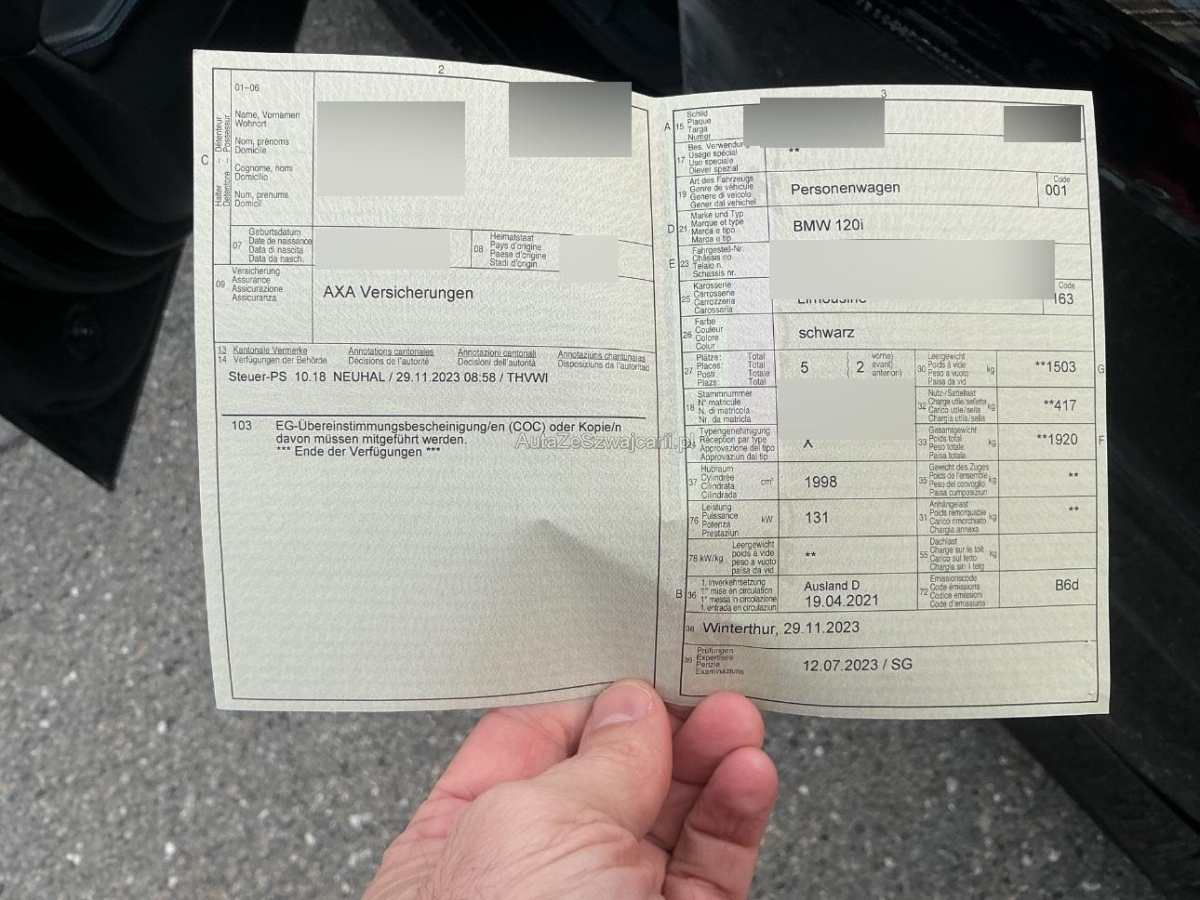 2
01-06
Name, Vornamen
Wohnort
Nom, prénoms
Domicile
Cognome, nomi
Domicilio
Num, prenums
Domicil
C
Halter – Détenteur
Detentore – Possessur
07
Geburtsdatum
Date de naissance
Data di nascita
Data da nasch.
08
Heimatstaat
Pays d'origine
Paese d'origine
Stadi d'origin
09
Versicherung
Assurance
Assicurazione
Assicuranza
AXA Versicherungen
13 Kantonale Vermerke Annotations cantonales Annotazioni cantonali Annotaziuns chantunalas
14 Verfügungen der Behörde Décisions de l'autorité Decisioni dell'autorità Disposiziuns da l'autoritad
Steuer-PS 10.18 NEUHAL / 29.11.2023 08:58 / THVWI
103 EG-Übereinstimmungsbescheinigung/en (COC) oder Kopie/n
davon müssen mitgeführt werden.
*** Ende der Verfügungen ***
AutaZeSzwajcarii.pl
3
A 15
Schild
Plaque
Targa
Numer
17
Bes. Verwendung
Usage spécial
Uso speciale
Diever spezial
**
19
Art des Fahrzeugs
Genre de véhicule
Genere di veicolo
Gener dal vehichel
Personenwagen
Code
001
D 21
Marke und Typ
Marque et type
Marca e tipo
Marca e tip
BMW 120i
E 23
Fahrgestell-Nr.
Châssis no
Telaio n.
Schassis nr.
25
Karosserie
Carrosserie
Carrozzeria
Carossaria
Limousine
Code
163
26
Farbe
Couleur
Colore
Colur
schwarz
27
Plätze: Total
Places: Total
Posti: Totale
Plazs: Total
5
2
vorne)
avant)
anteriori)
30
Leergewicht
Poids à vide
Peso a vuoto
Paisa da vid
kg
**1503
G
18
Stammnummer
N° matricule
N. di matricola
Nr. da matricla
32
Nutz-/Sattellast
Charge utile/sellette
Carico utile/sella
Chargia utila/sella
kg
**417
24
Typengenehmigung
Réception par type
Approvazione del tipo
Approvaziun dal tip
X
33
Gesamtgewicht
Poids total
Peso totale
Paisa totala
kg
**1920
F
37
Hubraum
Cylindrée
Cilindrata
Cilindrada
cm³
1998
35
Gewicht des Zuges
Poids de l'ensemble
Peso del convoglio
Paisa cumposiziun
kg
**
76
Leistung
Puissance
Potenza
Prestaziun
kW
131
31
Anhängelast
Poids remorquable
Carico rimorchiato
Chargia annexa
kg
**
78 kW/kg
Leergewicht
poids à vide
peso a vuoto
paisa da vid
**
55
Dachlast
Charge sur le toit
Carico sul tetto
Chargia sin il tetg
kg
B 36
1. Inverkehrsetzung
1re mise en circulation
1a messa in circolazione
1. entrada en circulaziun
Ausland D
19.04.2021
72
Emissionscode
Code émissions
Codice emissioni
Code d'emissiuns
B6d
38 Winterthur, 29.11.2023
39
Prüfungen
Expertises
Perizie
Examinaziuns
12.07.2023 / SG